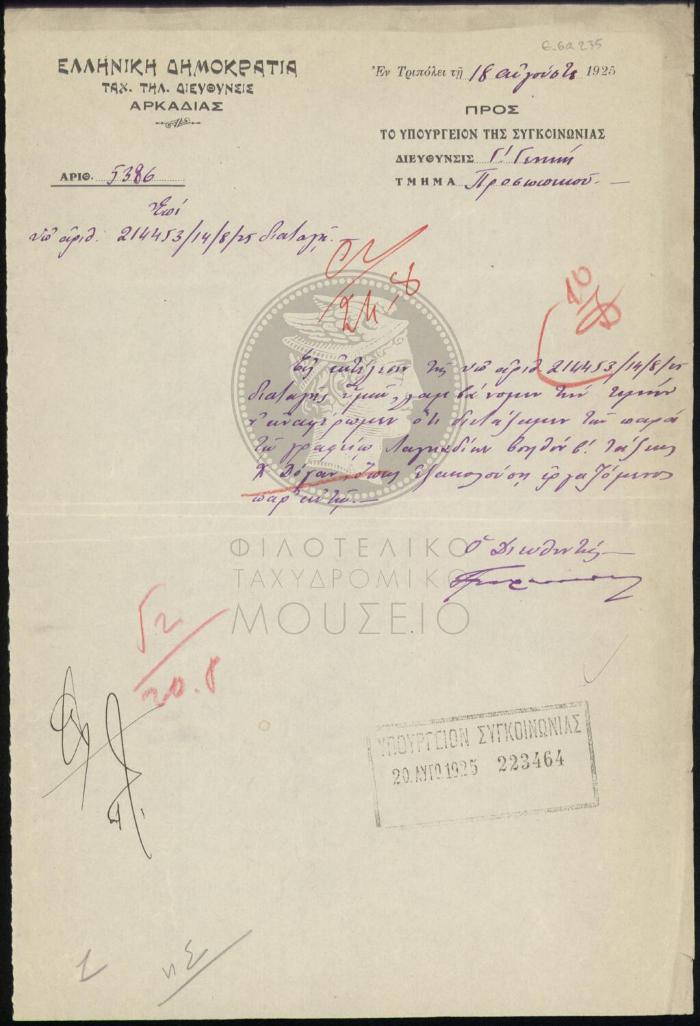 6.6α 235
ΕΛΛΗΝΙΚΗ ΔΗΜΟΚΡΑΤΙΑ
ΤΑΧ. ΤΗΛ. ΔΙΕΥΘΥΝΣΙΣ
ΑΡΚΑΔΙΑΣ
Ἐν Τριπόλει τῇ 18 αὐγούστου 1925
ΠΡΟΣ
ΤΟ ΥΠΟΥΡΓΕΙΟΝ ΤΗΣ ΣΥΓΚΟΙΝΩΝΙΑΣ
ΔΙΕΥΘΥΝΣΙΣ Γ! Γενική
ΤΜΗΜΑ Προσωπικοῦ.
ΑΡΙΘ. 5386
Ἐπί
ὑπ' ἀριθ. 214453/14/8/25 διαταγῆς.
52/24.8
10/8
Εἰς ἐκτέλεσιν τῆς ὑπ' ἀριθ. 214453/14/8/25
διαταγῆς ὑμῶν, λαμβάνομεν τὴν τιμήν
ν' ἀναφέρωμεν ὅτι διετάξαμεν τὸν παρά
τῷ γραφείῳ Λαγκαδίων βοηθόν β' τάξεως
ὅπως ἐξακολουθήσῃ ἐργαζόμενος
παρ' αὐτῷ.
Ὁ Διευθυντής
ΦΙΛΟΤΕΛΙΚΟ
ΤΑΧΥΔΡΟΜΙΚΟ
ΜΟΥΣΕΙΟ
52/20.8
ΥΠΟΥΡΓΕΙΟΝ ΣΥΓΚΟΙΝΩΝΙΑΣ
20 ΑΥΓΟ 1925 223464
1